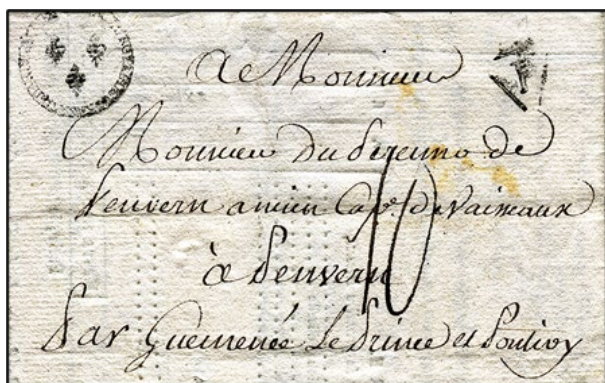 A Monsieur
Monsieur du Perenno de
Penvern ancien Cap.e de Vaisseaux
à Penvern
10
Par Guemenée Le Prince et Pontivy